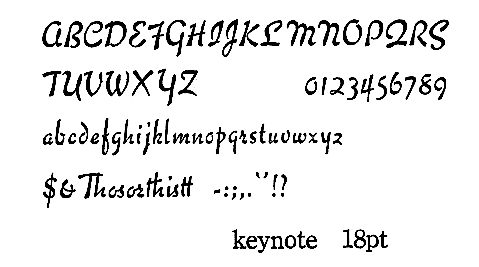 ABCDEFGHIJKLMNOPQRS
TUVWXYZ 0123456789
abcdefghijklmnopqrstuvwxyz
$& Thosorthistt -:;,.`´!?
keynote 18pt